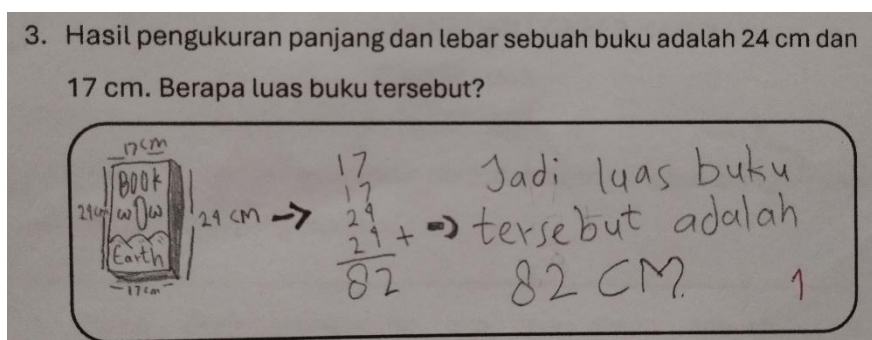 3. Hasil pengukuran panjang dan lebar sebuah buku adalah 24 cm dan
17 cm. Berapa luas buku tersebut?
17 cm
BOOK
WOW
Earth
24 cm
24 cm
17 cm
17
17
24
24 +
82
Jadi luas buku
tersebut adalah
82 CM.
1